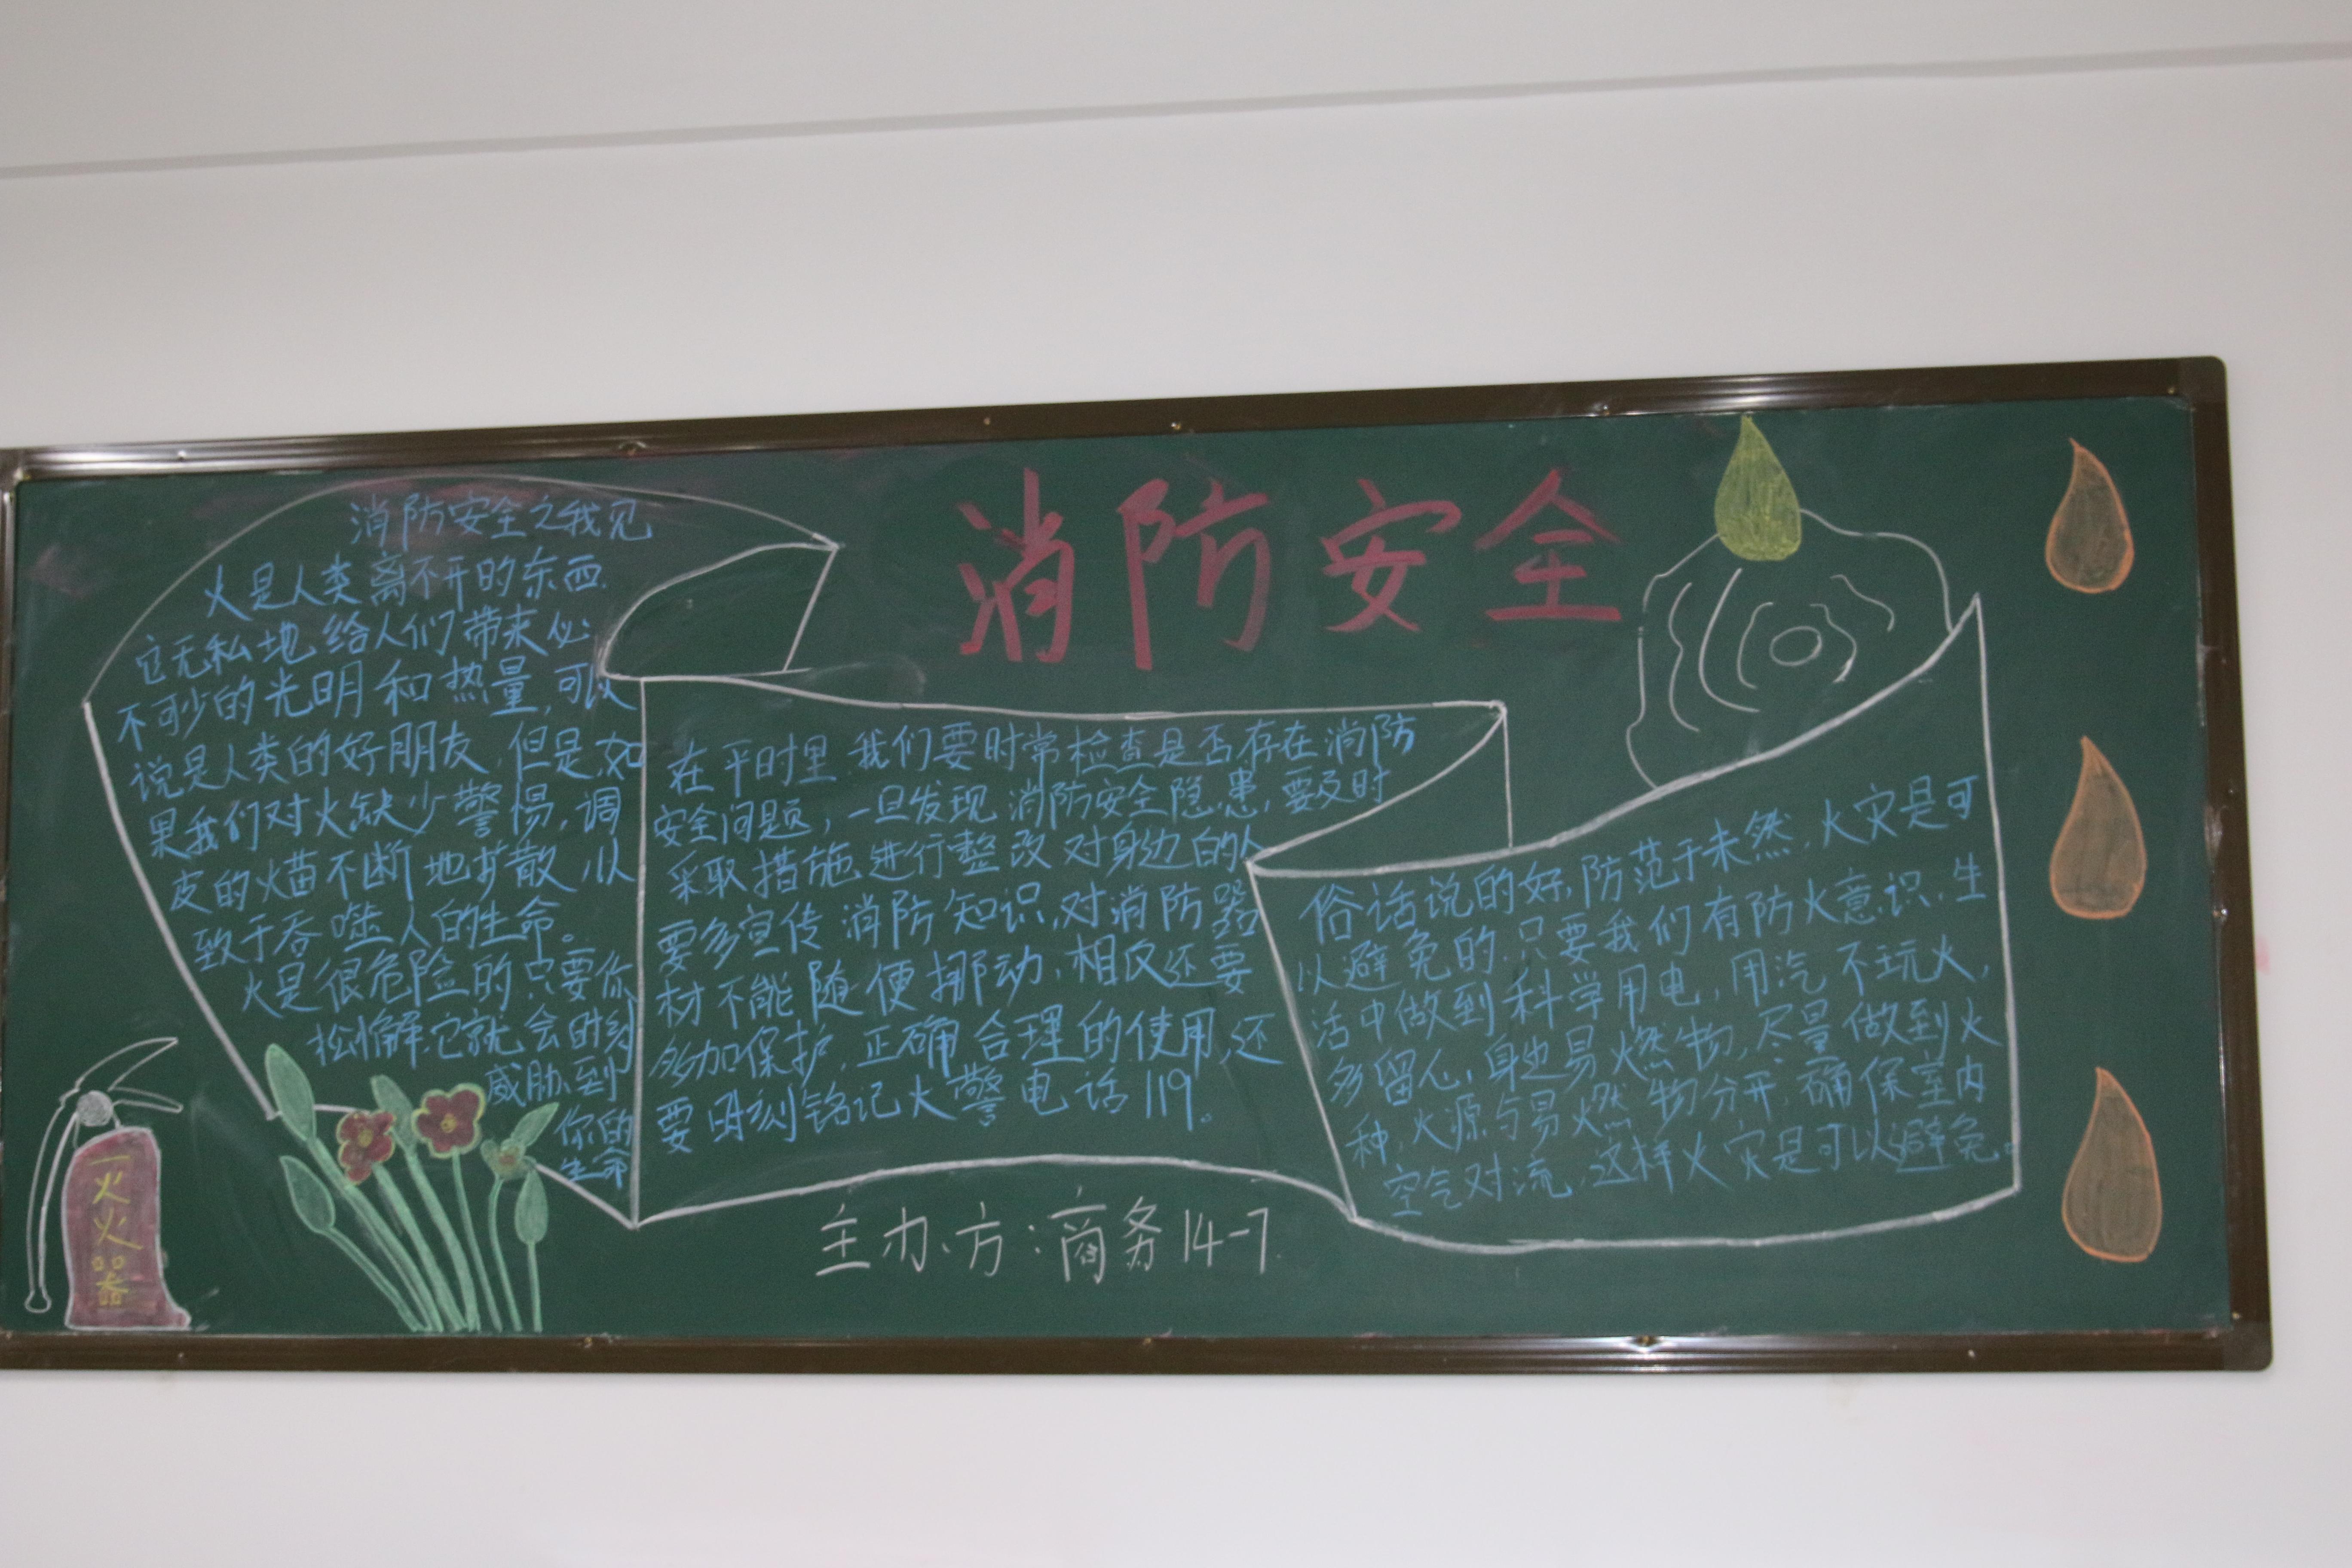 消防安全
消防安全之我见
火是人类离不开的东西.
它无私地给人们带来必
不可少的光明和热量,可以
说是人类的好朋友,但是,如
果我们对火缺少警惕,调
皮的火苗不断地扩散,以
致于吞噬人的生命。
火是很危险的只要你
松懈.它就会时刻
威胁到
你的
生命
在平时里.我们要时常检查是否存在消防
安全问题,一旦发现消防安全隐患,要及时
采取措施.进行整改.对身边的人
要多宣传消防知识,对消防器
材不能随便挪动,相反还要
多加保护,正确合理的使用,还
要时刻铭记火警电话119。
俗话说的好,防范于未然,火灾是可
以避免的.只要我们有防火意识.生
活中做到科学用电,用汽.不玩火,
多留心,身边易燃物,尽量做到火
种,火源与易燃物分开,确保室内
空气对流,这样火灾是可以避免。
灭火器
主办方:商务14-7.